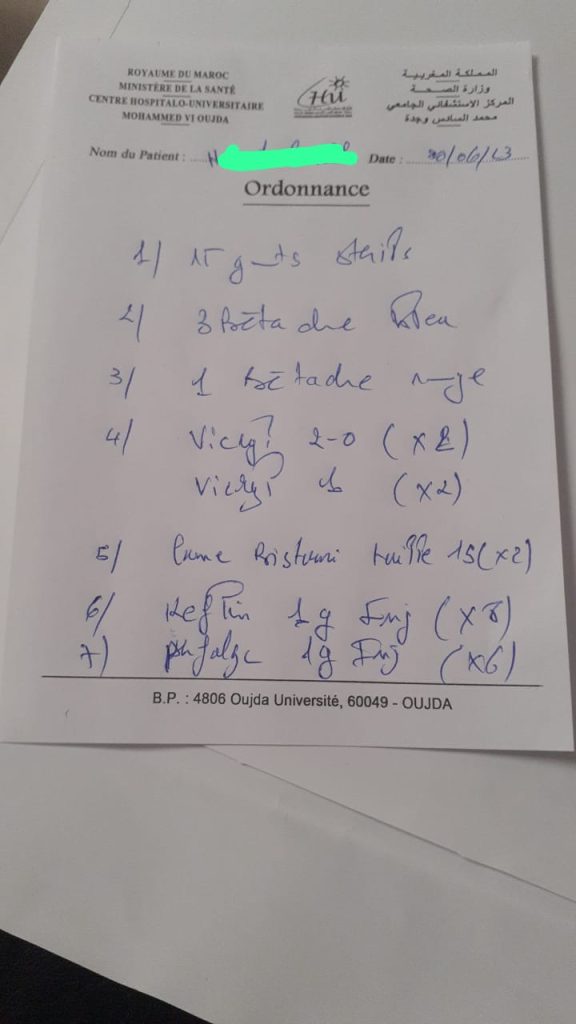 ROYAUME DU MAROC
MINISTÈRE DE LA SANTÉ
CENTRE HOSPITALO-UNIVERSITAIRE
MOHAMMED VI OUJDA
المملكة المغربية
وزارة الصحة
المركز الاستشفائي الجامعي
محمد السادس وجدة
CHU
Nom du Patient : Date : /06/13
Ordonnance
1/ 15 gants
2/ 3 Bétadine Bleu
3/ 1 Bétadine rouge
4/ Vicryl 2-0 (x2)
Vicryl 1 (x2)
5/ Lame Bistouri taille 15 (x2)
6/ Keflin 1g Inj (x8)
7/ 1g Inj (x6)
B.P. : 4806 Oujda Université, 60049 - OUJDA